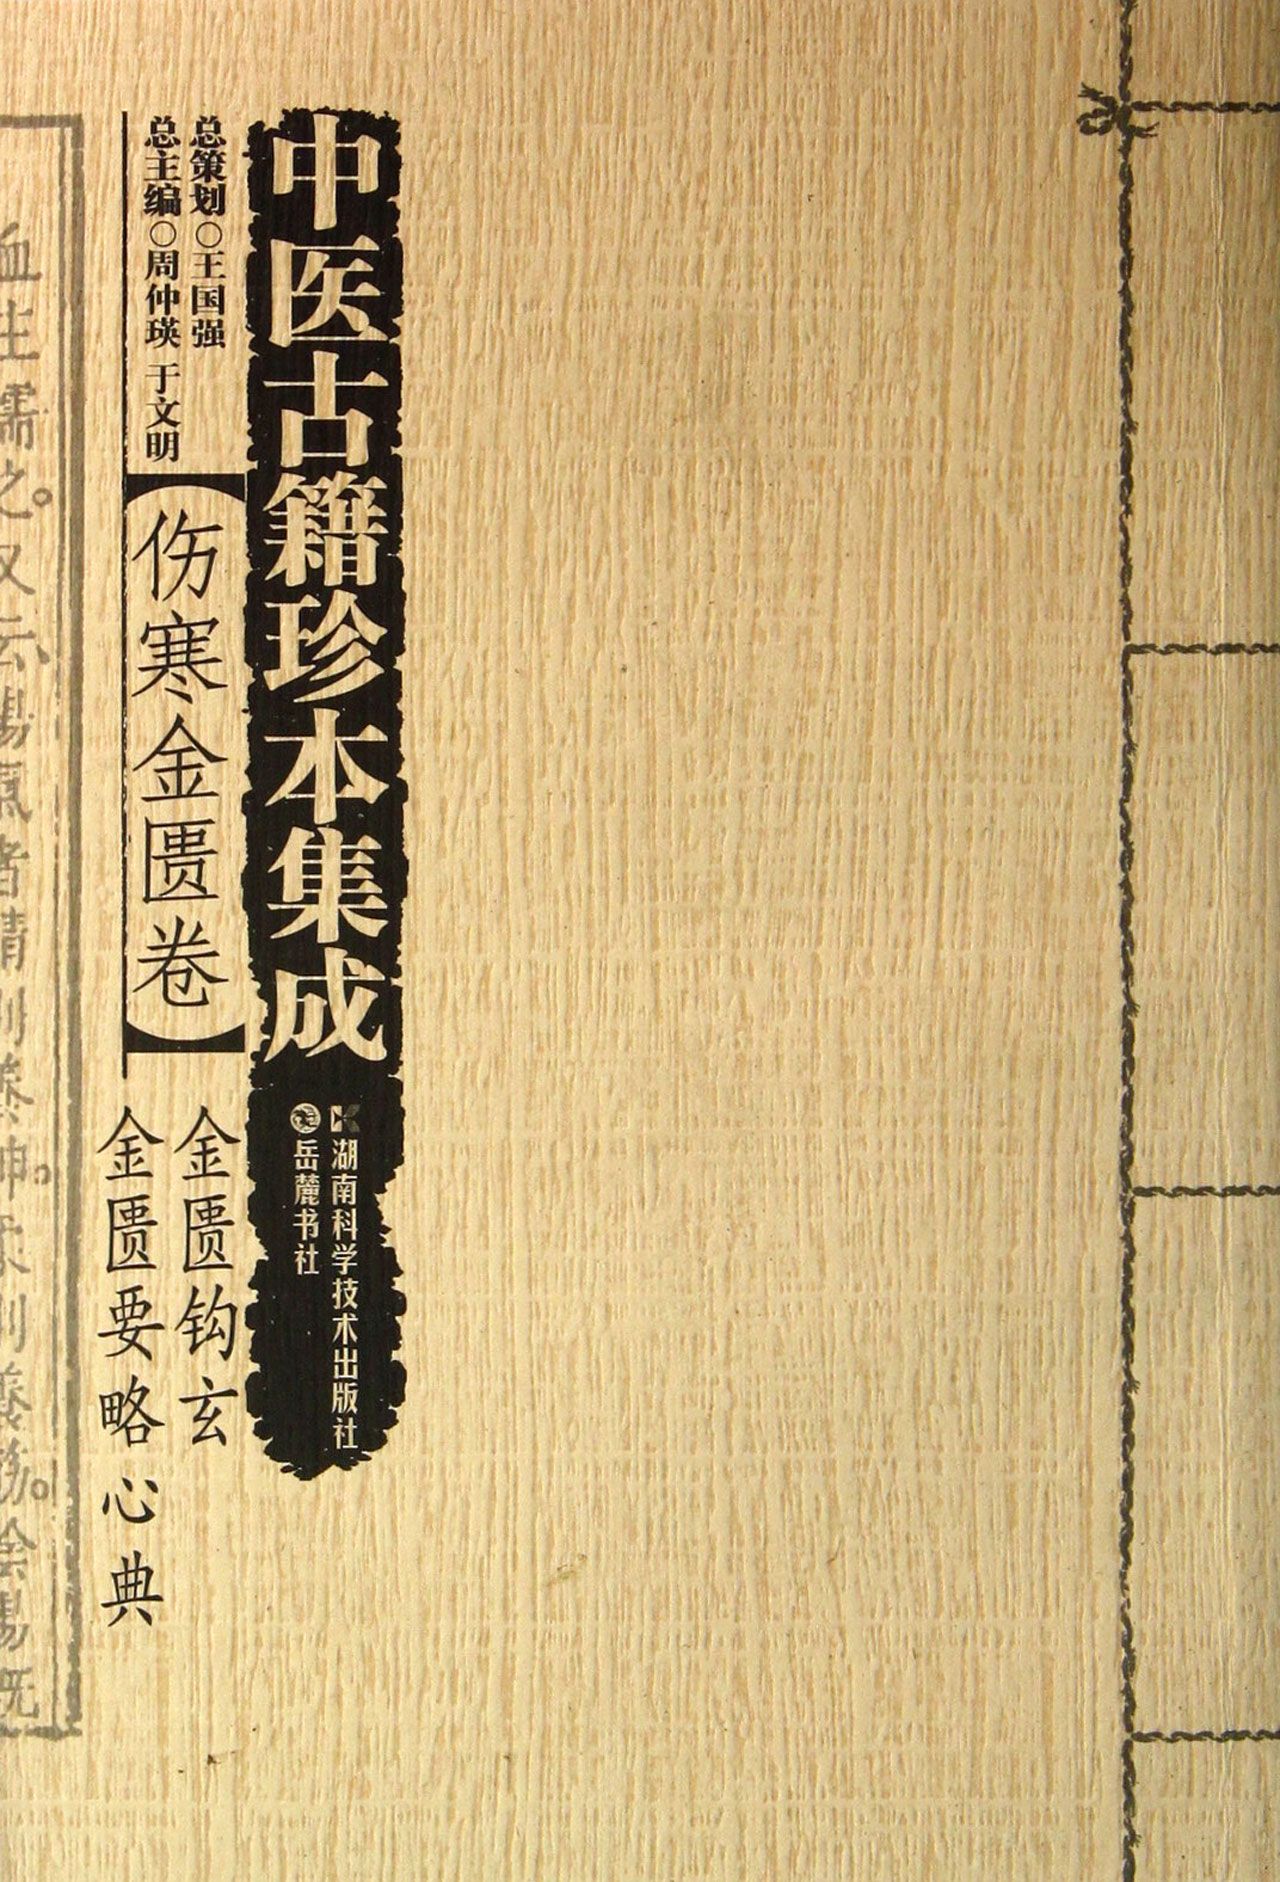 中医古籍珍本集成
湖南科学技术出版社
岳麓书社
总策划○王国强
总主编○周仲瑛 于文明
伤寒金匮卷
金匮钩玄
金匮要略心典
血生濡之。又云陽氣者精則養神。柔則養筋。陰陽既